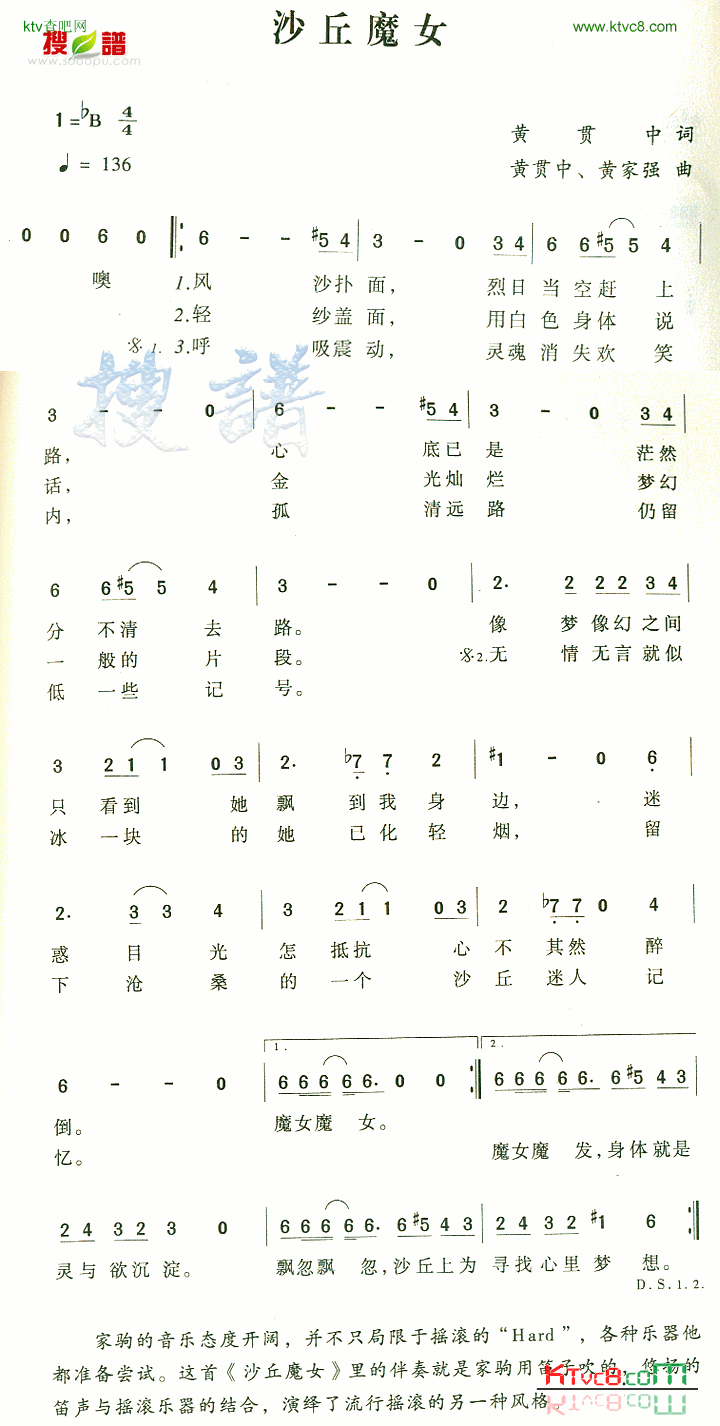 ktv查吧网
搜谱
www.sooopu.com
沙丘魔女
www.ktvc8.com
1=♭B 4/4
♩= 136
黄贯中 词
黄贯中、黄家强 曲
0 0 6 0 6 - - #5 4 3 - 0 3 4 6 6 #5 5 4
噢 1.风 沙扑面, 烈日当空赶上
2.轻 纱盖面, 用白色身体说
1. 3.呼 吸震动, 灵魂消失欢笑
搜譜
3 - - 0 6 - - #5 4 3 - 0 3 4
路, 心 底已是 茫然
话, 金 光灿烂 梦幻
内, 孤 清远路 仍留
6 6 #5 5 4 3 - - 0 2. 2 2 2 3 4
分不清去路。 像 梦像幻之间
一般的片段。 2.无 情无言就似
低一些记号。
3 2 1 1 0 3 2. ♭7 7 2 #1 - 0 6
只看到 她飘 到我身边, 迷
冰一块 的她 已化轻烟, 留
2. 3 3 4 3 2 1 1 0 3 2 ♭7 7 0 4
惑目光怎抵抗 心不其然醉
下沧桑的一个 沙丘迷人记
1. 2.
6 - - 0 6 6 6 6 6. 0 0 6 6 6 6 6. 6 #5 4 3
倒。 魔女魔 女。
忆。 魔女魔 发,身体就是
2 4 3 2 3 0 6 6 6 6 6. 6 #5 4 3 2 4 3 2 #1 6
灵与欲沉淀。 飘忽飘 忽,沙丘上为寻找心里梦想。
D.S.1.2.
家驹的音乐态度开阔，并不只局限于摇滚的“Hard”，各种乐器他
都准备尝试。这首《沙丘魔女》里的伴奏就是家驹用笛子吹的，悠扬的
笛声与摇滚乐器的结合，演绎了流行摇滚的另一种风格。
KTvc8.com